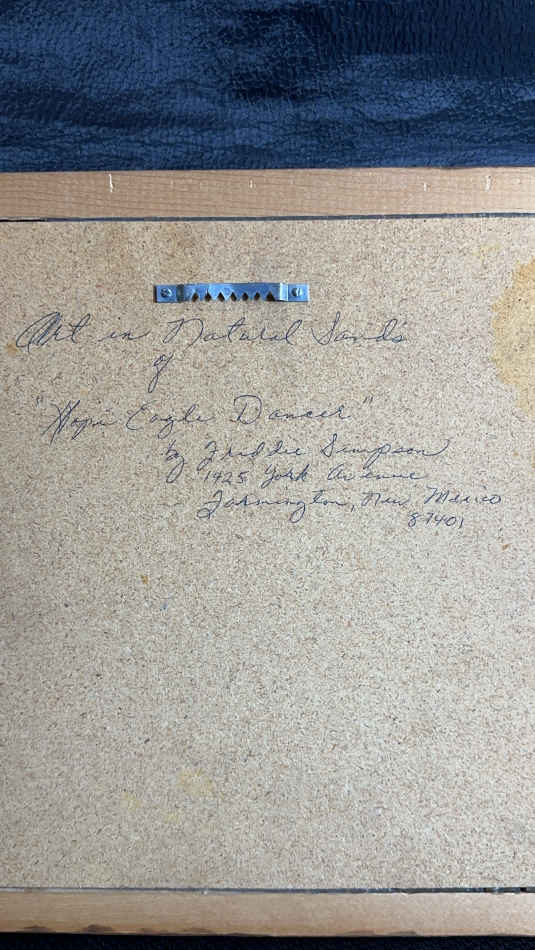 Art in Natural Sands
of
"Hopi Eagle Dancer"
by Freddie Simpson
1425 York Avenue
Farmington, New Mexico
87401